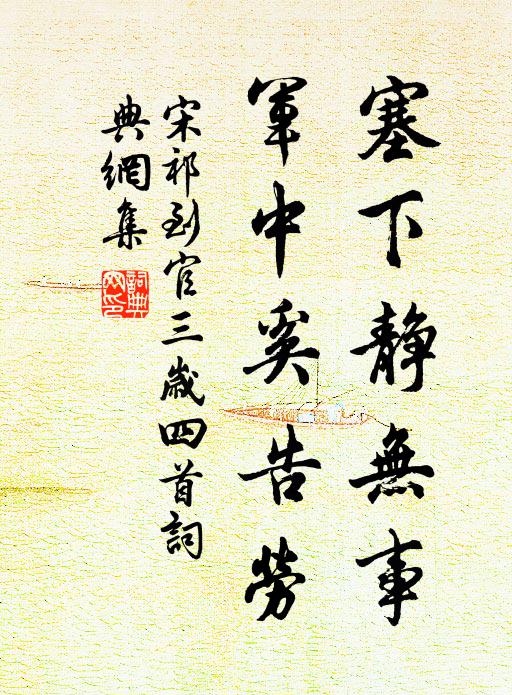 塞下静無事
軍中奚告勞
宋祁到官三歲四首詞
典網集
詞典
网印